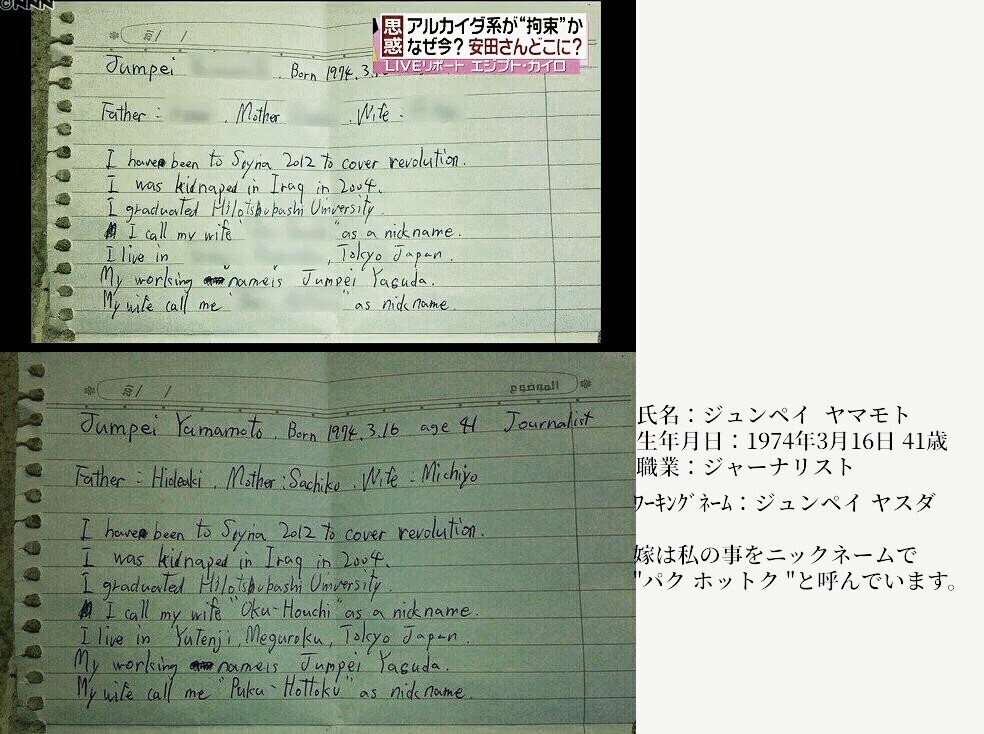 ©NNN
思惑
アルカイダ系が“拘束”か
なぜ今？安田さんどこに？
LIVEリポート エジプト・カイロ
/ /
Jumpei , Born 1974.3.
Father : , Mother , Wife :
I have been to Seyria 2012 to cover revolution.
I was kidnaped in Iraq in 2004.
I graduated Hitotsubashi University.
I call my wife " " as a nickname.
I live in , Tokyo Japan.
My working name is Jumpei Yasuda.
My wife call me " " as nickname.
/ /
الموضوع
Jumpei Yamamoto, Born 1974.3.16 age 41 Journalist
Father : Hideaki, Mother : Sachiko, Wife : Michiyo
I have been to Seyria 2012 to cover revolution.
I was kidnaped in Iraq in 2004.
I graduated Hitotsubashi University.
I call my wife "Oku-Houchi" as a nickname.
I live in Yutenji, Meguroku, Tokyo Japan.
My working name is Jumpei Yasuda.
My wife call me "Puku-Hottoku" as nickname
氏名：ジュンペイ ヤマモト
生年月日：1974年3月16日 41歳
職業：ジャーナリスト
ﾜｰｷﾝｸﾞﾈｰﾑ：ジュンペイ ヤスダ
嫁は私の事をニックネームで
"パク ホットク "と呼んでいます。